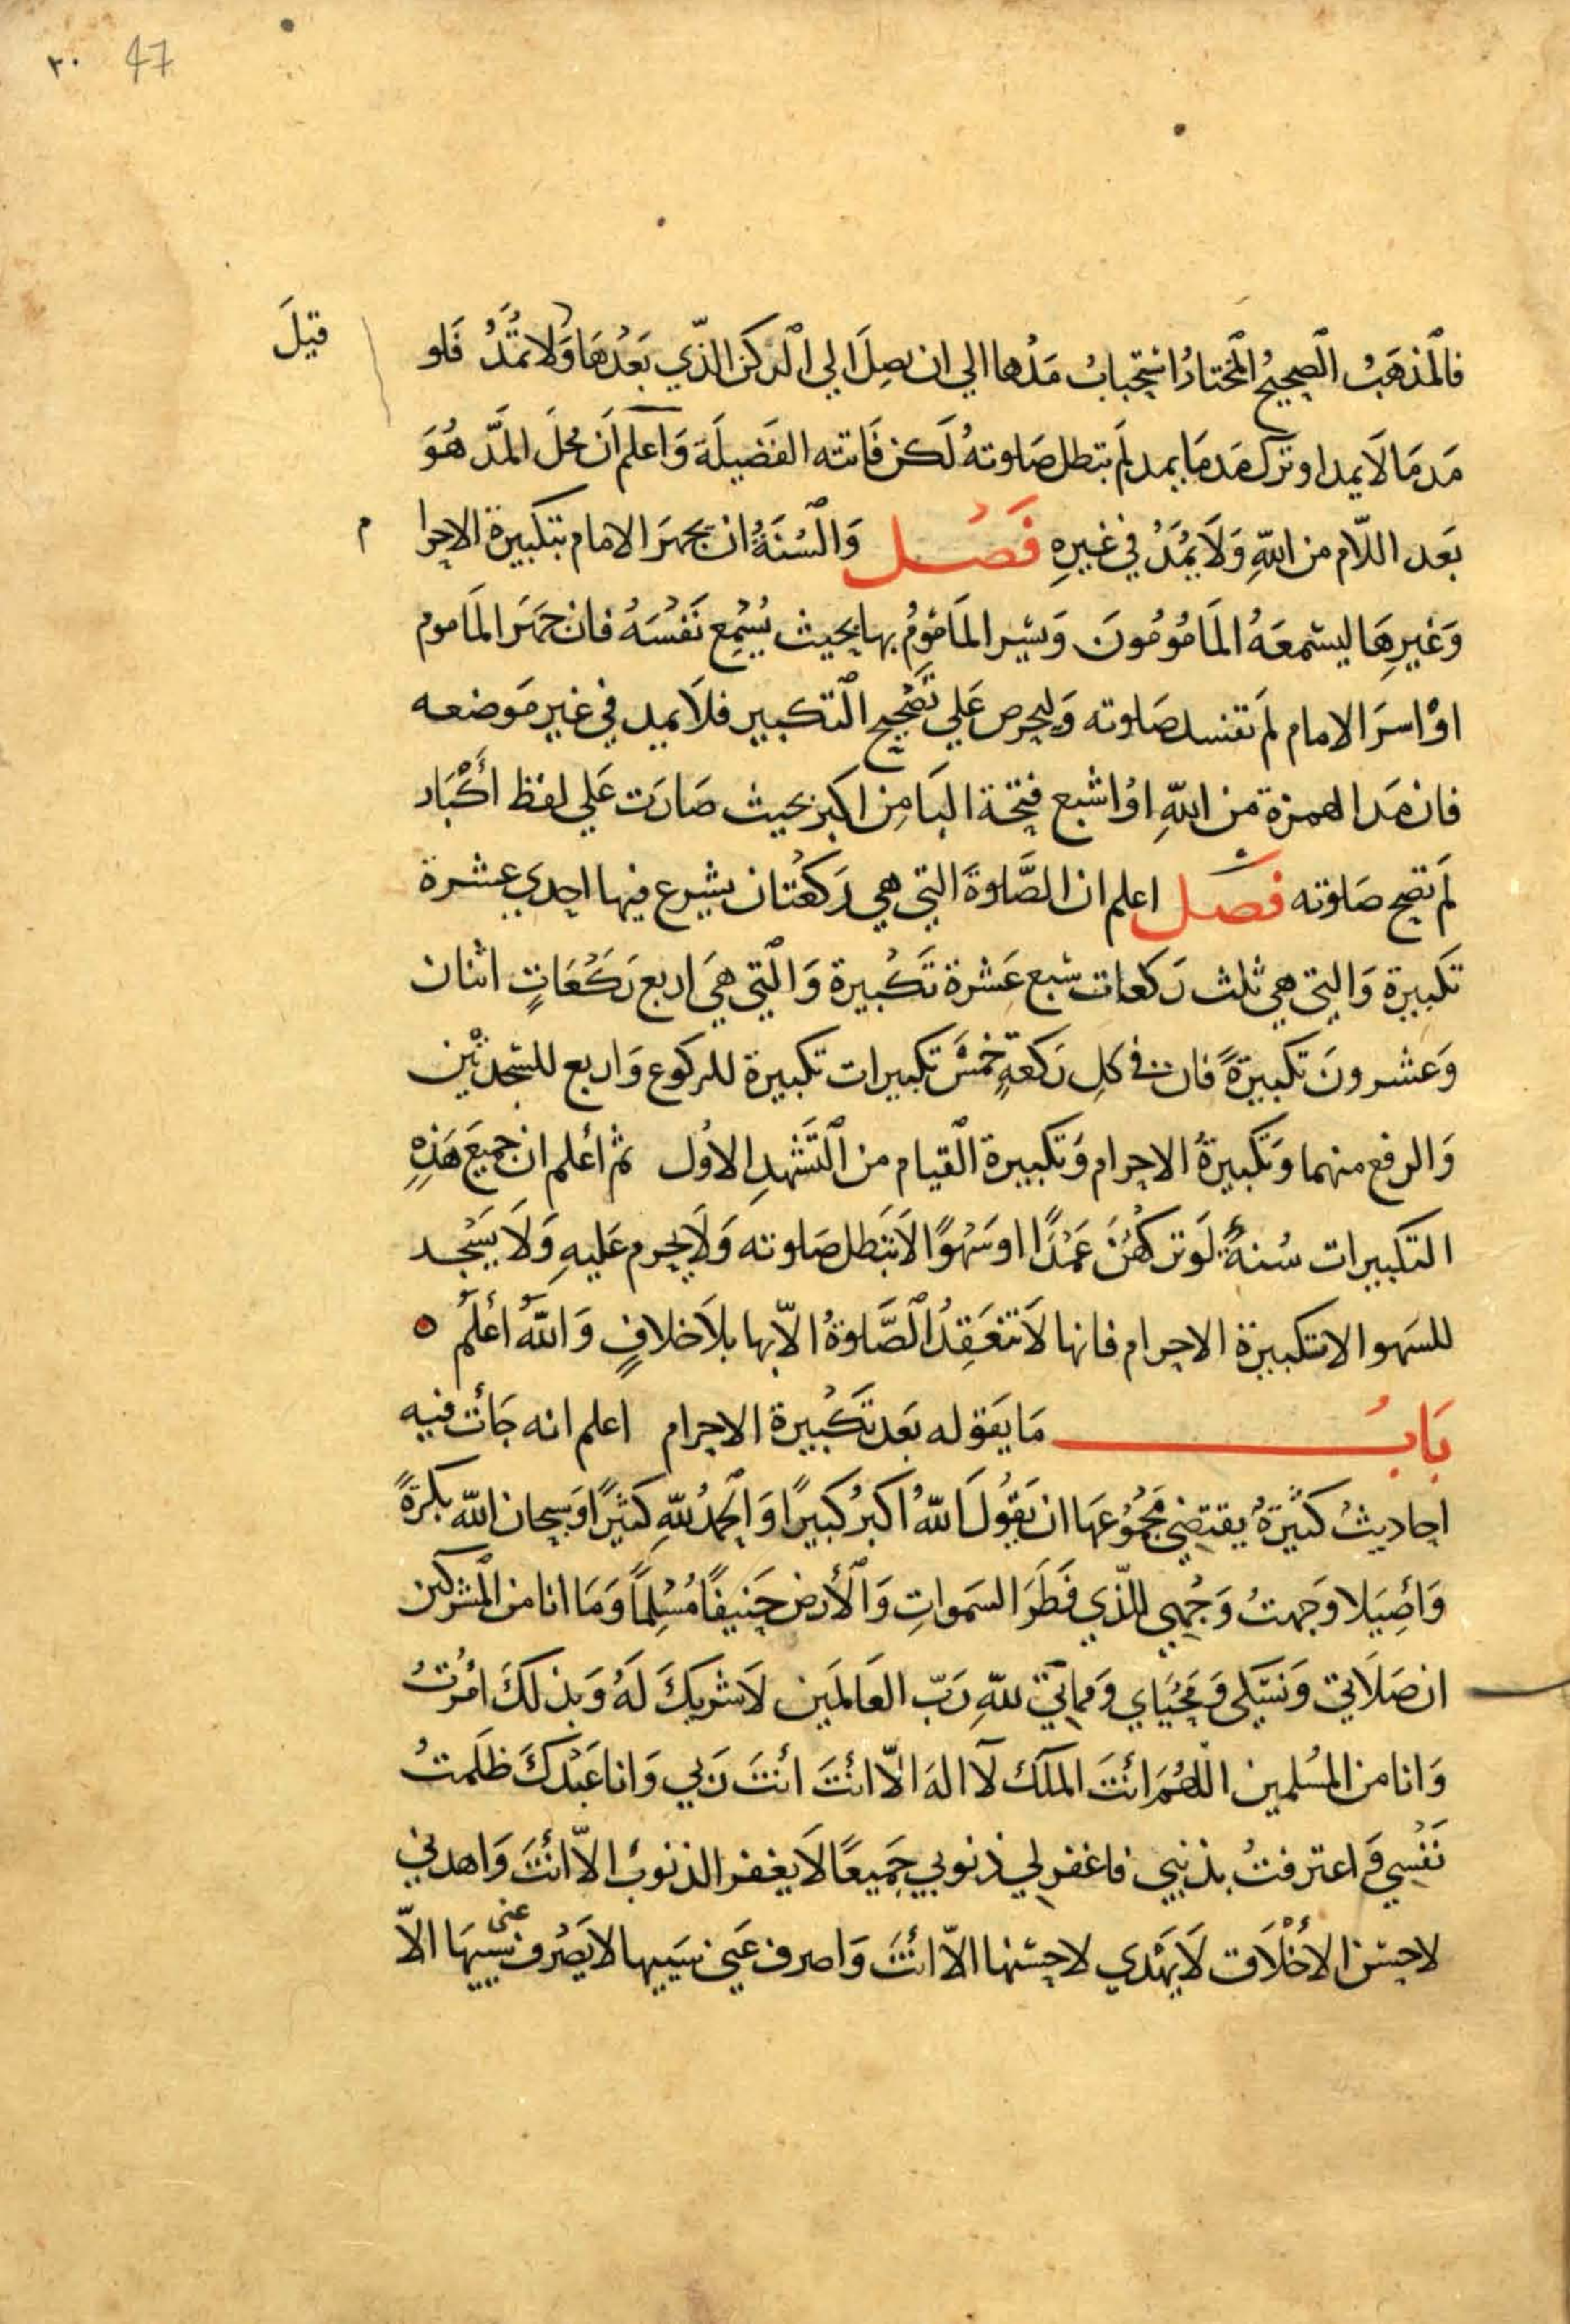 ٣٠ 47
فالمَذهَبُ الصحيحُ المختارُ استحبابُ مَدُّها الي ان يصِلَ الي الركن الذّي بَعْدَهَا وَلا تمُدُّ فَلو
قيلَ
مَد مَا لَا يمد او ترَك مَد مَا يمد لم تبطل صَلوتهُ لَكن فَاتته الفَضيلَة وَاعلم اَن محلَ المَدّ هُوَ
بَعد اللّام من اللهِ وَلَا يمُدّ في غيرِهِ فَصْل وَالسُنَةُ ان يجهَرَ الامام بتكبيرة الاحرا
م
وَغيرِهَا ليسْمعَهُ المَامُومُونَ وَيسُر المَامُومُ بها بحيث يُسْمِع نَفْسَهُ فان جَهَر المَاموم
اوْ اسرَ الامام لم تفسد صَلوته وَليحرص عَلي تَصْحيح التكبير فلا يمد في غير مَوضعه
فان مَد الهمزة من اللهِ اوْ اشبع فتحة البَا مِن اكبر بحيث صَارَت عَلي لفظ أكْبَار
لم تصح صَلوته فصَل اعلم ان الصَّلوةَ التي هي رَكعْتان يشرع فيها احدي عشرة
تكبيرة وَالتي هي ثلث رَكعات سَبع عَشْرة تكْبيرة وَالتي هيَ اربع رَكعَاتٍ اثنان
وَعشرونَ تكبيرةً فان في كلِ رَكعةٍ خمسَ تكبيرات تكبيرة للركوع وَاربع للسّجدتين
وَالرفع منهما وَتكبيرةُ الاحرام وَتكبيرة القيام من التَشَهدِ الاوُل ثم أعلم ان جميعَ هَذِهِ
التكبيرات سُنةٌ لَو تركهُنَ عَمْدًا او سَهْوًا لا تبَطل صَلوته وَلَا يحرم عَليهِ وَلَا يَسْجد
للسَهو الا تكبيرة الاحرام فانها لَا تنعَقِدُ الصَّلوةُ الاّ بها بلَا خلافٍ وَاللهُ أعْلَمُ ه
بَابُ مَا يَقوله بَعد تكْبيرة الاحرام اعلم انه جَأت فيه
احاديثُ كثيرَةُ يقتضي مَجْمُوُعهَا ان يَقوُلَ اللهُ اكبرُ كبيرًا وَالحمدُ للهِ كثيرًا وَسبحان الله بكرَةً
وَأصِيَلا وَجهتُ وَجْهي للذّي فَطَرَ السَموات وَالأرض حَنيفًا مُسْلِمًا وَمَا انا من المشركين
ان صَلَاتي وَنسُكي وَمَحيَاي وَمماتي للهِ رَبّ العَالمَين لَا شريكَ لَهُ وَبذلكَ امُرْتُ
وَانا من المسُلمين اللهُم انْتَ الملَك لآ الهَ الاّ انْتَ انْتَ رَبي وَانا عَبْدكَ ظلَمتُ
نَفْسِي وَاعترفتُ بذنبي فاغفر لي ذنوبي جَميعًا لَا يغفر الذنوبُ الاّ أنْتَ وَاهدني
لاحسْن الأخْلَاق لَا يَهْدي لاحسْنها الاّ انْتَ وَاصرف عَني سَييها لا يَصْرف عنى سَييهَا الاّ